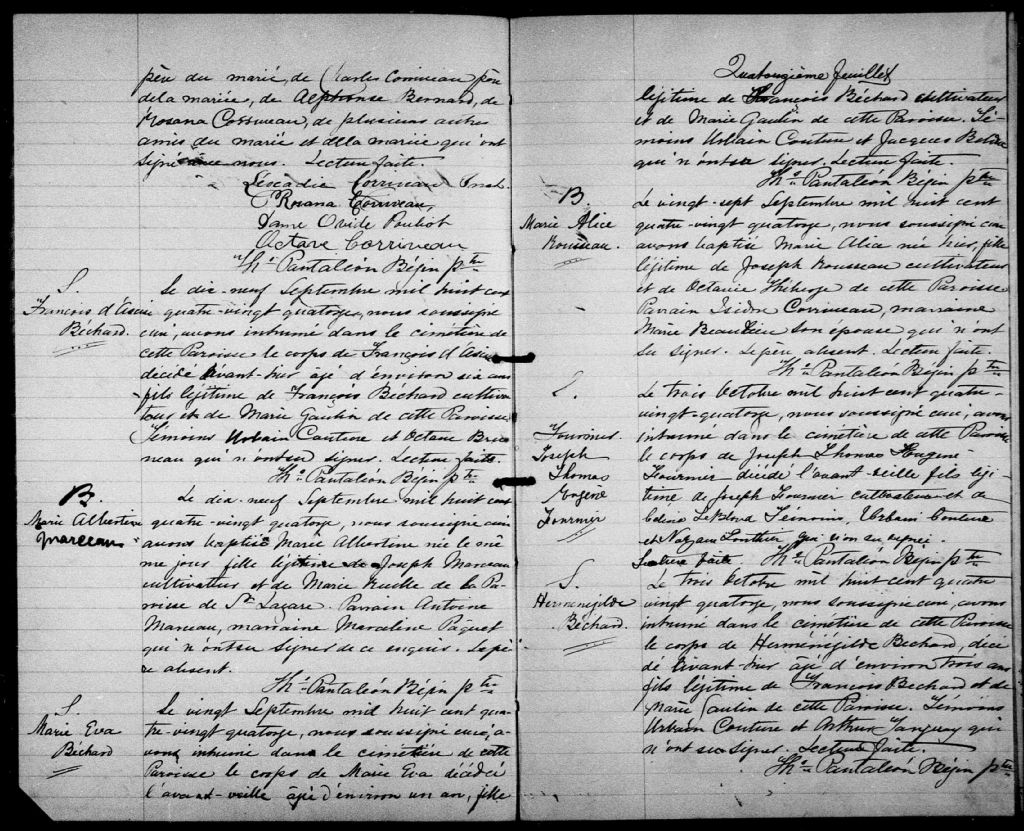 père du marié, de Charles Corriveau père
de la mariée, de Alphonse Bernard, de
Rosana Corriveau, de plusieurs autres
amis du marié et de la mariée qui ont
signé avec nous. Lecture faite.
Léocadie Corriveau
Rosana Corriveau,
Dame Ovide Pouliot
Octave Corriveau
Ths Pantaléon Bégin ptre
S.
François d'Assise
Béchard.
Le dix-neuf Septembre mil huit cent
quatre-vingt quatorze, nous soussigné
curé, avons inhumé dans le cimetière de
cette Paroisse le corps de François d'Assise
décédé avant-hier âgé d'environ six ans
fils légitime de François Béchard cultiva
teur et de Marie Gaulin de cette Paroisse
Témoins Urbain Couture et Octave Bru
neau qui n'ont su signer. Lecture faite.
Ths Pantaléon Bégin ptre
B.
Marie Albertine
Marceau
Le dix-neuf Septembre mil huit cent
quatre-vingt quatorze, nous soussigné curé
avons baptisé Marie Albertine née le mê
me jour fille légitime de Joseph Marceau
cultivateur et de Marie de la Pa
roisse de St Lazare. Parrain Antoine
Marceau, marraine Marceline Paquet
qui n'ont su signer de ce enquis. Le pè
re absent.
Ths Pantaléon Bégin ptre
S.
Marie Eva
Béchard
Le vingt Septembre mil huit cent qua
tre-vingt-quatorze, nous soussigné curé, a-
vons inhumé dans le cimetière de cette
Paroisse le corps de Marie Eva décédée
l'avant-veille âgée d'environ un an, fille
Quatorzième feuillet
légitime de François Béchard cultivateur
et de Marie Gaulin de cette Paroisse. Té-
moins Urbain Couture et Jacques
qui n'ont su signer. Lecture faite.
Ths Pantaléon Bégin ptre
B.
Marie Alice
Rousseau.
Le vingt-sept Septembre mil huit cent
quatre-vingt quatorze, nous soussigné curé
avons baptisé Marie Alice née hier, fille
légitime de Joseph Rousseau cultivateur
et de Octavie Théberge de cette Paroisse
Parrain Isidore Corriveau, marraine
Marie Beaudoin son épouse qui n'ont
su signer. Le père absent. Lecture faite.
Ths Pantaléon Bégin ptre
S.
Fournier
Joseph
Thomas
Eugène
Fournier
Le trois Octobre mil huit cent quatre-
vingt-quatorze, nous soussigné curé, avons
inhumé dans le cimetière de cette Paroisse
le corps de Joseph Thomas Eugène
Fournier décédé l'avant-veille fils légi
time de Joseph Fournier cultivateur et de
Leblond Témoins, Urbain Couture
et qui n'on su signer.
Lecture faite. Ths Pantaléon Bégin ptre
S.
Herménégilde
Béchard.
Le trois Octobre mil huit cent quatre
vingt quatorze, nous soussigné curé, avons
inhumé dans le cimetière de cette Paroisse
le corps de Herménégilde Béchard, décé
dé avant-hier âgé d'environ trois ans
fils légitime de François Béchard et de
Marie Gaulin de cette Paroisse. Témoins
Urbain Couture et Arthur Tanguay qui
n'ont su signer. Lecture faite.
Ths Pantaléon Bégin ptre